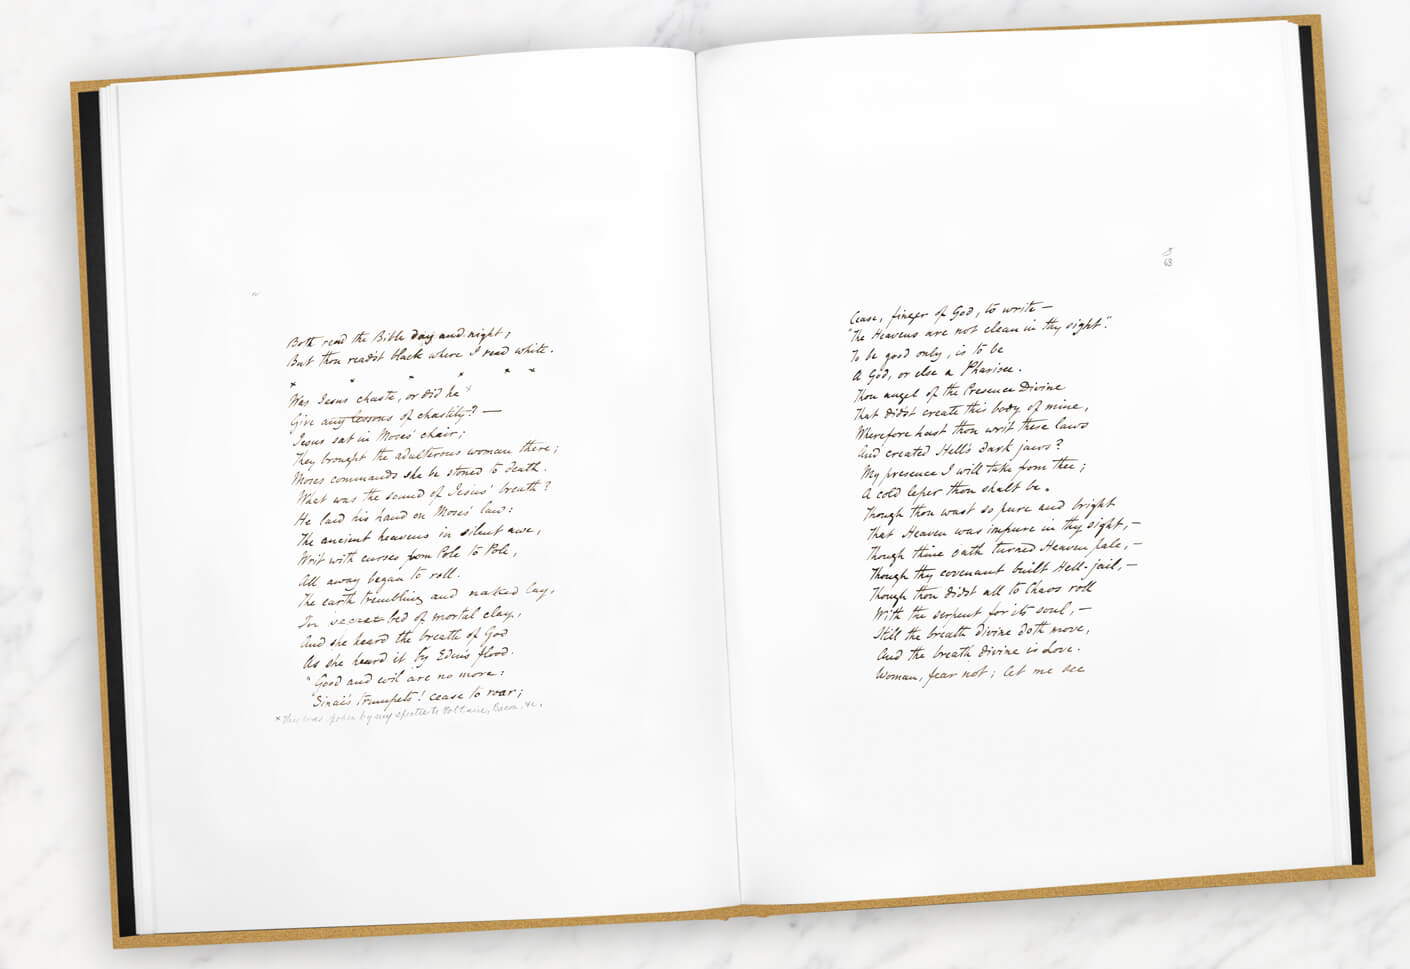 Both read the Bible day and night;
But thou readst black where I read white.
x x x x x x
Was Jesus chaste, or did he x
Give any lessons of chastity? —
Jesus sat in Moses' chair;
They brought the adulterous woman there;
Moses commands she be stoned to death.
What was the sound of Jesus' breath?
He laid his hand on Moses' law:
The ancient heavens in silent awe,
Writ with curses from Pole to Pole,
All away began to roll.
The earth trembling and naked lay,
In secret bed of mortal clay,
And she heard the breath of God
As she heard it by Eden's flood.
"Good and evil are no more:
Sinai's trumpets! cease to roar;
x This was spoken by my spectre to Voltaire, Bacon, &c.
63
Cease, finger of God, to write —
"The Heavens are not clean in thy sight".
To be good only, is to be
A God, or else a Pharisee.
Thou angel of the Presence Divine
That didst create this body of mine,
Wherefore hast thou writ these laws
And created Hell's dark jaws?
My presence I will take from thee;
A cold leper thou shalt be.
Though thou wast so pure and bright
That Heaven was impure in thy sight, —
Though thine oath turned Heaven pale, —
Though thy covenant built Hell-jail, —
Though thou didst all to Chaos roll
With the serpent for its soul, —
Still the breath divine doth move,
And the breath divine is Love.
Woman, fear not; let me see